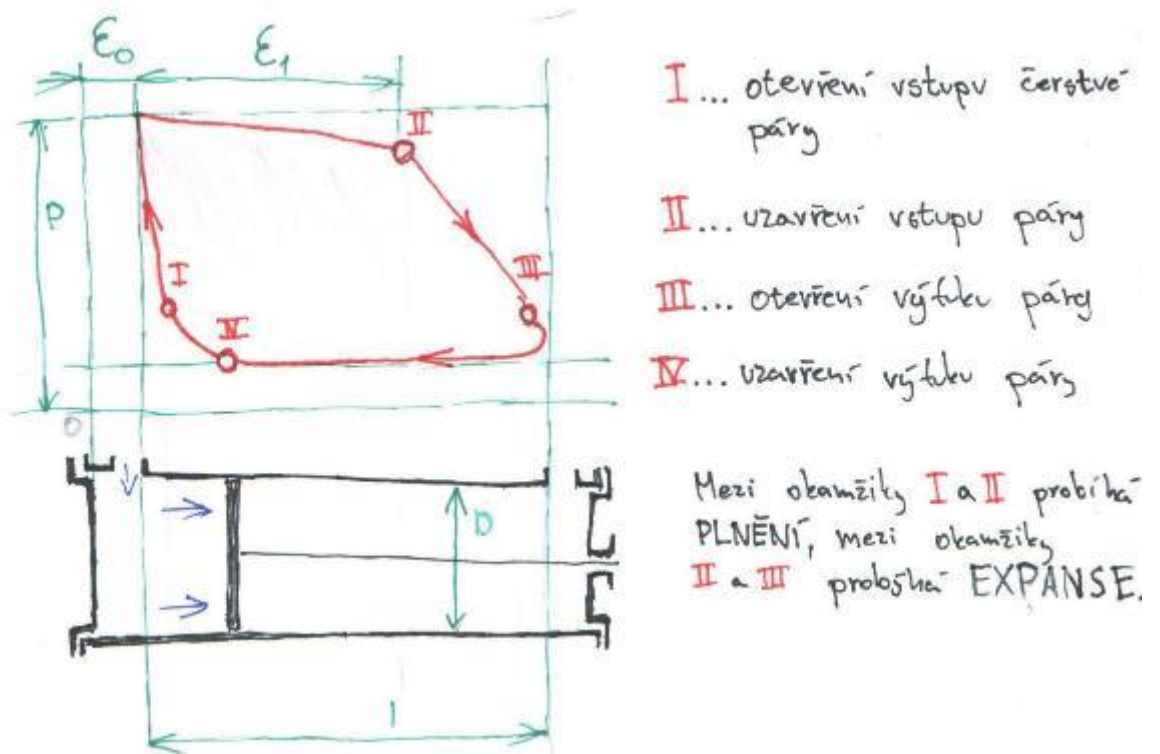 ε₀ ε₁
II
p
I
III
IV
0
D
l
I... otevření vstupu čerstvé
páry
II... uzavření vstupu páry
III... otevření výfuku páry
IV... uzavření výfuku páry
Mezi okamžiky I a II probíhá
PLNĚNÍ, mezi okamžiky
II a III probíhá EXPANSE.